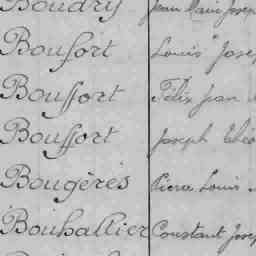 Boudry Jean Marie Josep
Boufort Louis Josep
Bouffort Félix Jean
Bouffort Joseph Théo
Bougérés Pierre Louis
Bouhallier Constant Josep